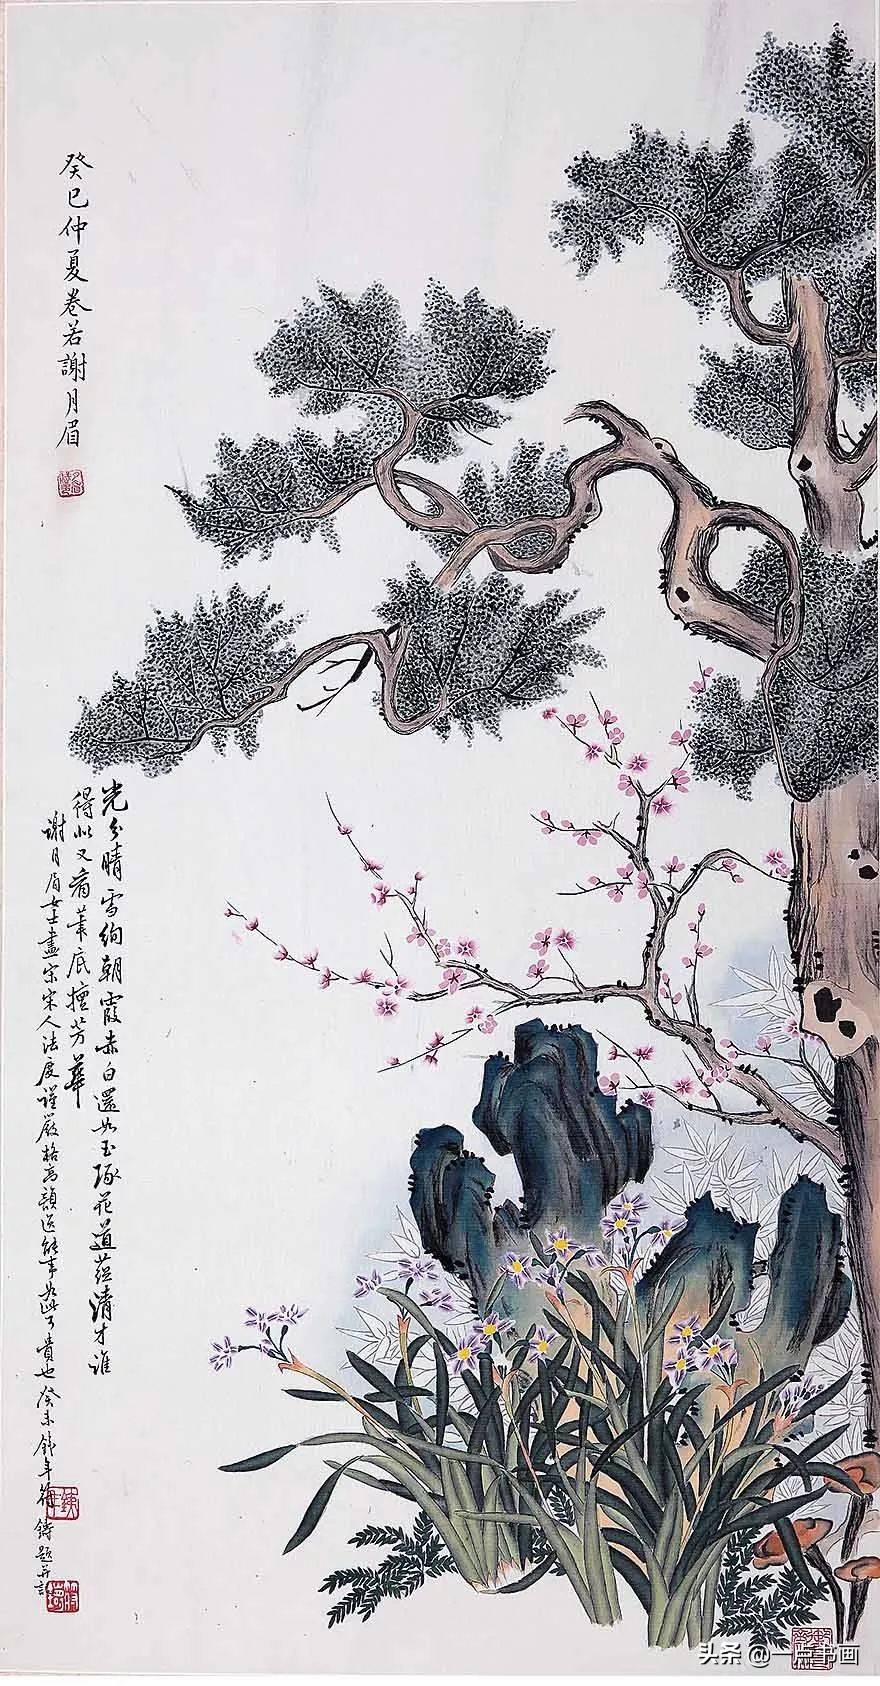 癸巳仲夏卷若謝月眉
光分晴雪絢朝霞赤白還如玉琢花道蕴清才誰
得似又看華底擅芳華
謝月眉女士畫宗宋人法度謹嚴格高韻逸能事如此可貴也癸未錢年符鑄題并記
头条 @一点书画